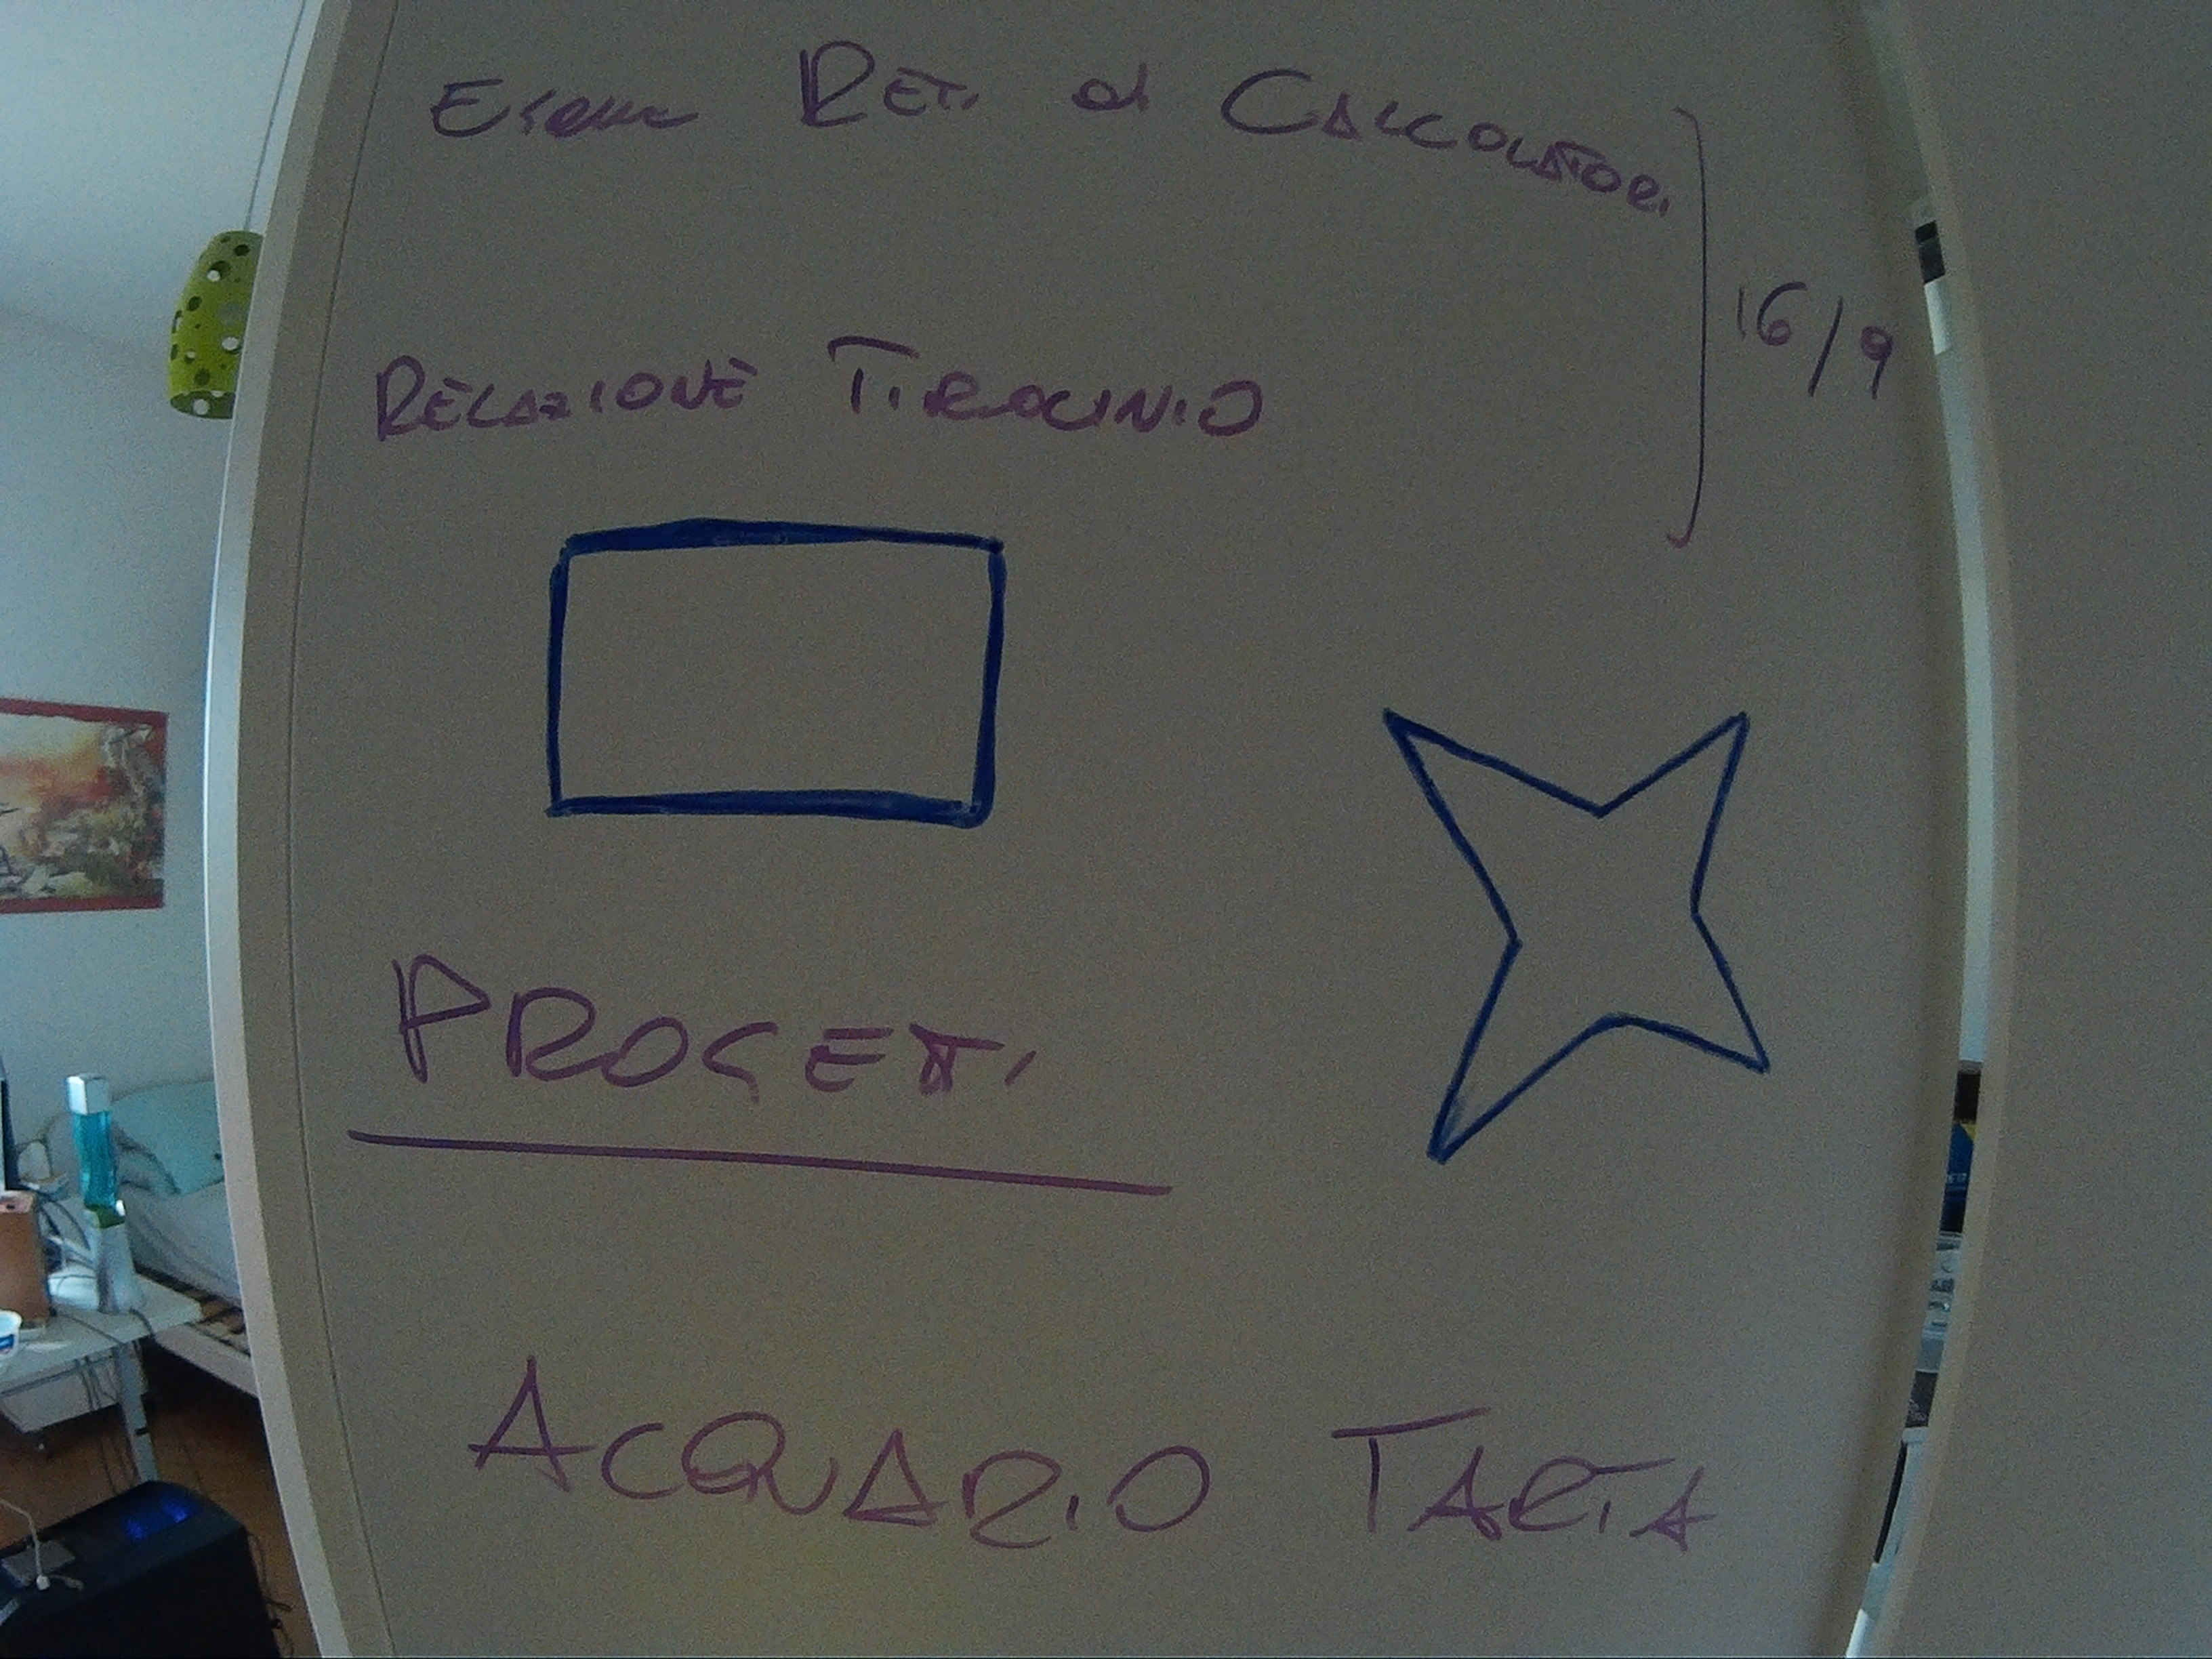 Esame RETI di CALCOLATORI
16/9
RELAZIONE TIROCINIO
PROGETTI
ACQUARIO TARTA